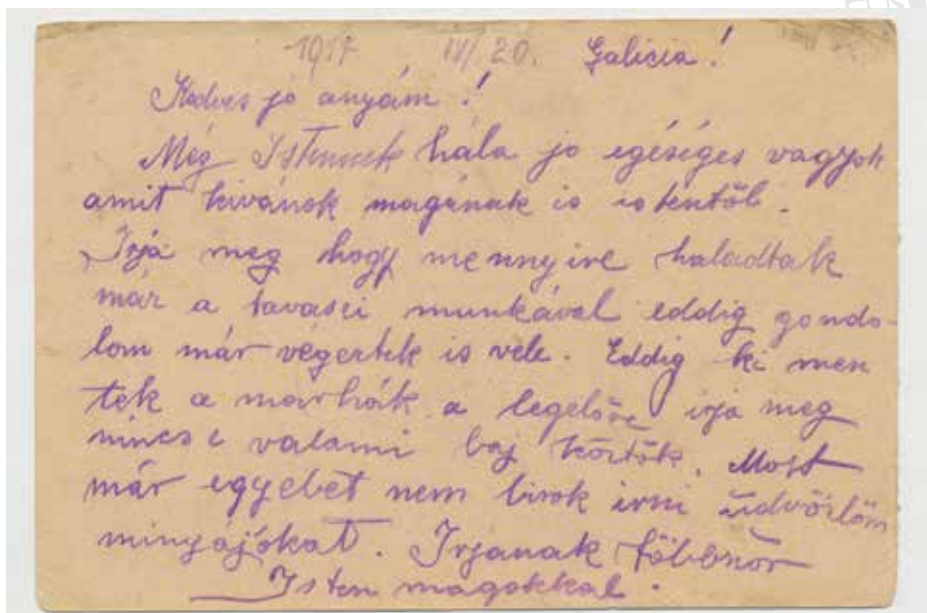 1917 IV/20. Galicia!
Kedves jo anyám!
Még Istennek hála jo egéséges vagyok
amit kivánok magának is istentöl.
Irja meg hogy mennyire haladtak
már a tavaszi munkával eddig gondo-
lom már végeztek is vele. Eddig ki men
tek a marhák a legelöre irja meg
nincs e valami baj köztök. Most
már egyebet nem birok irni üdvözlöm
mingájokat. Irjanak többször
Isten magokkal.